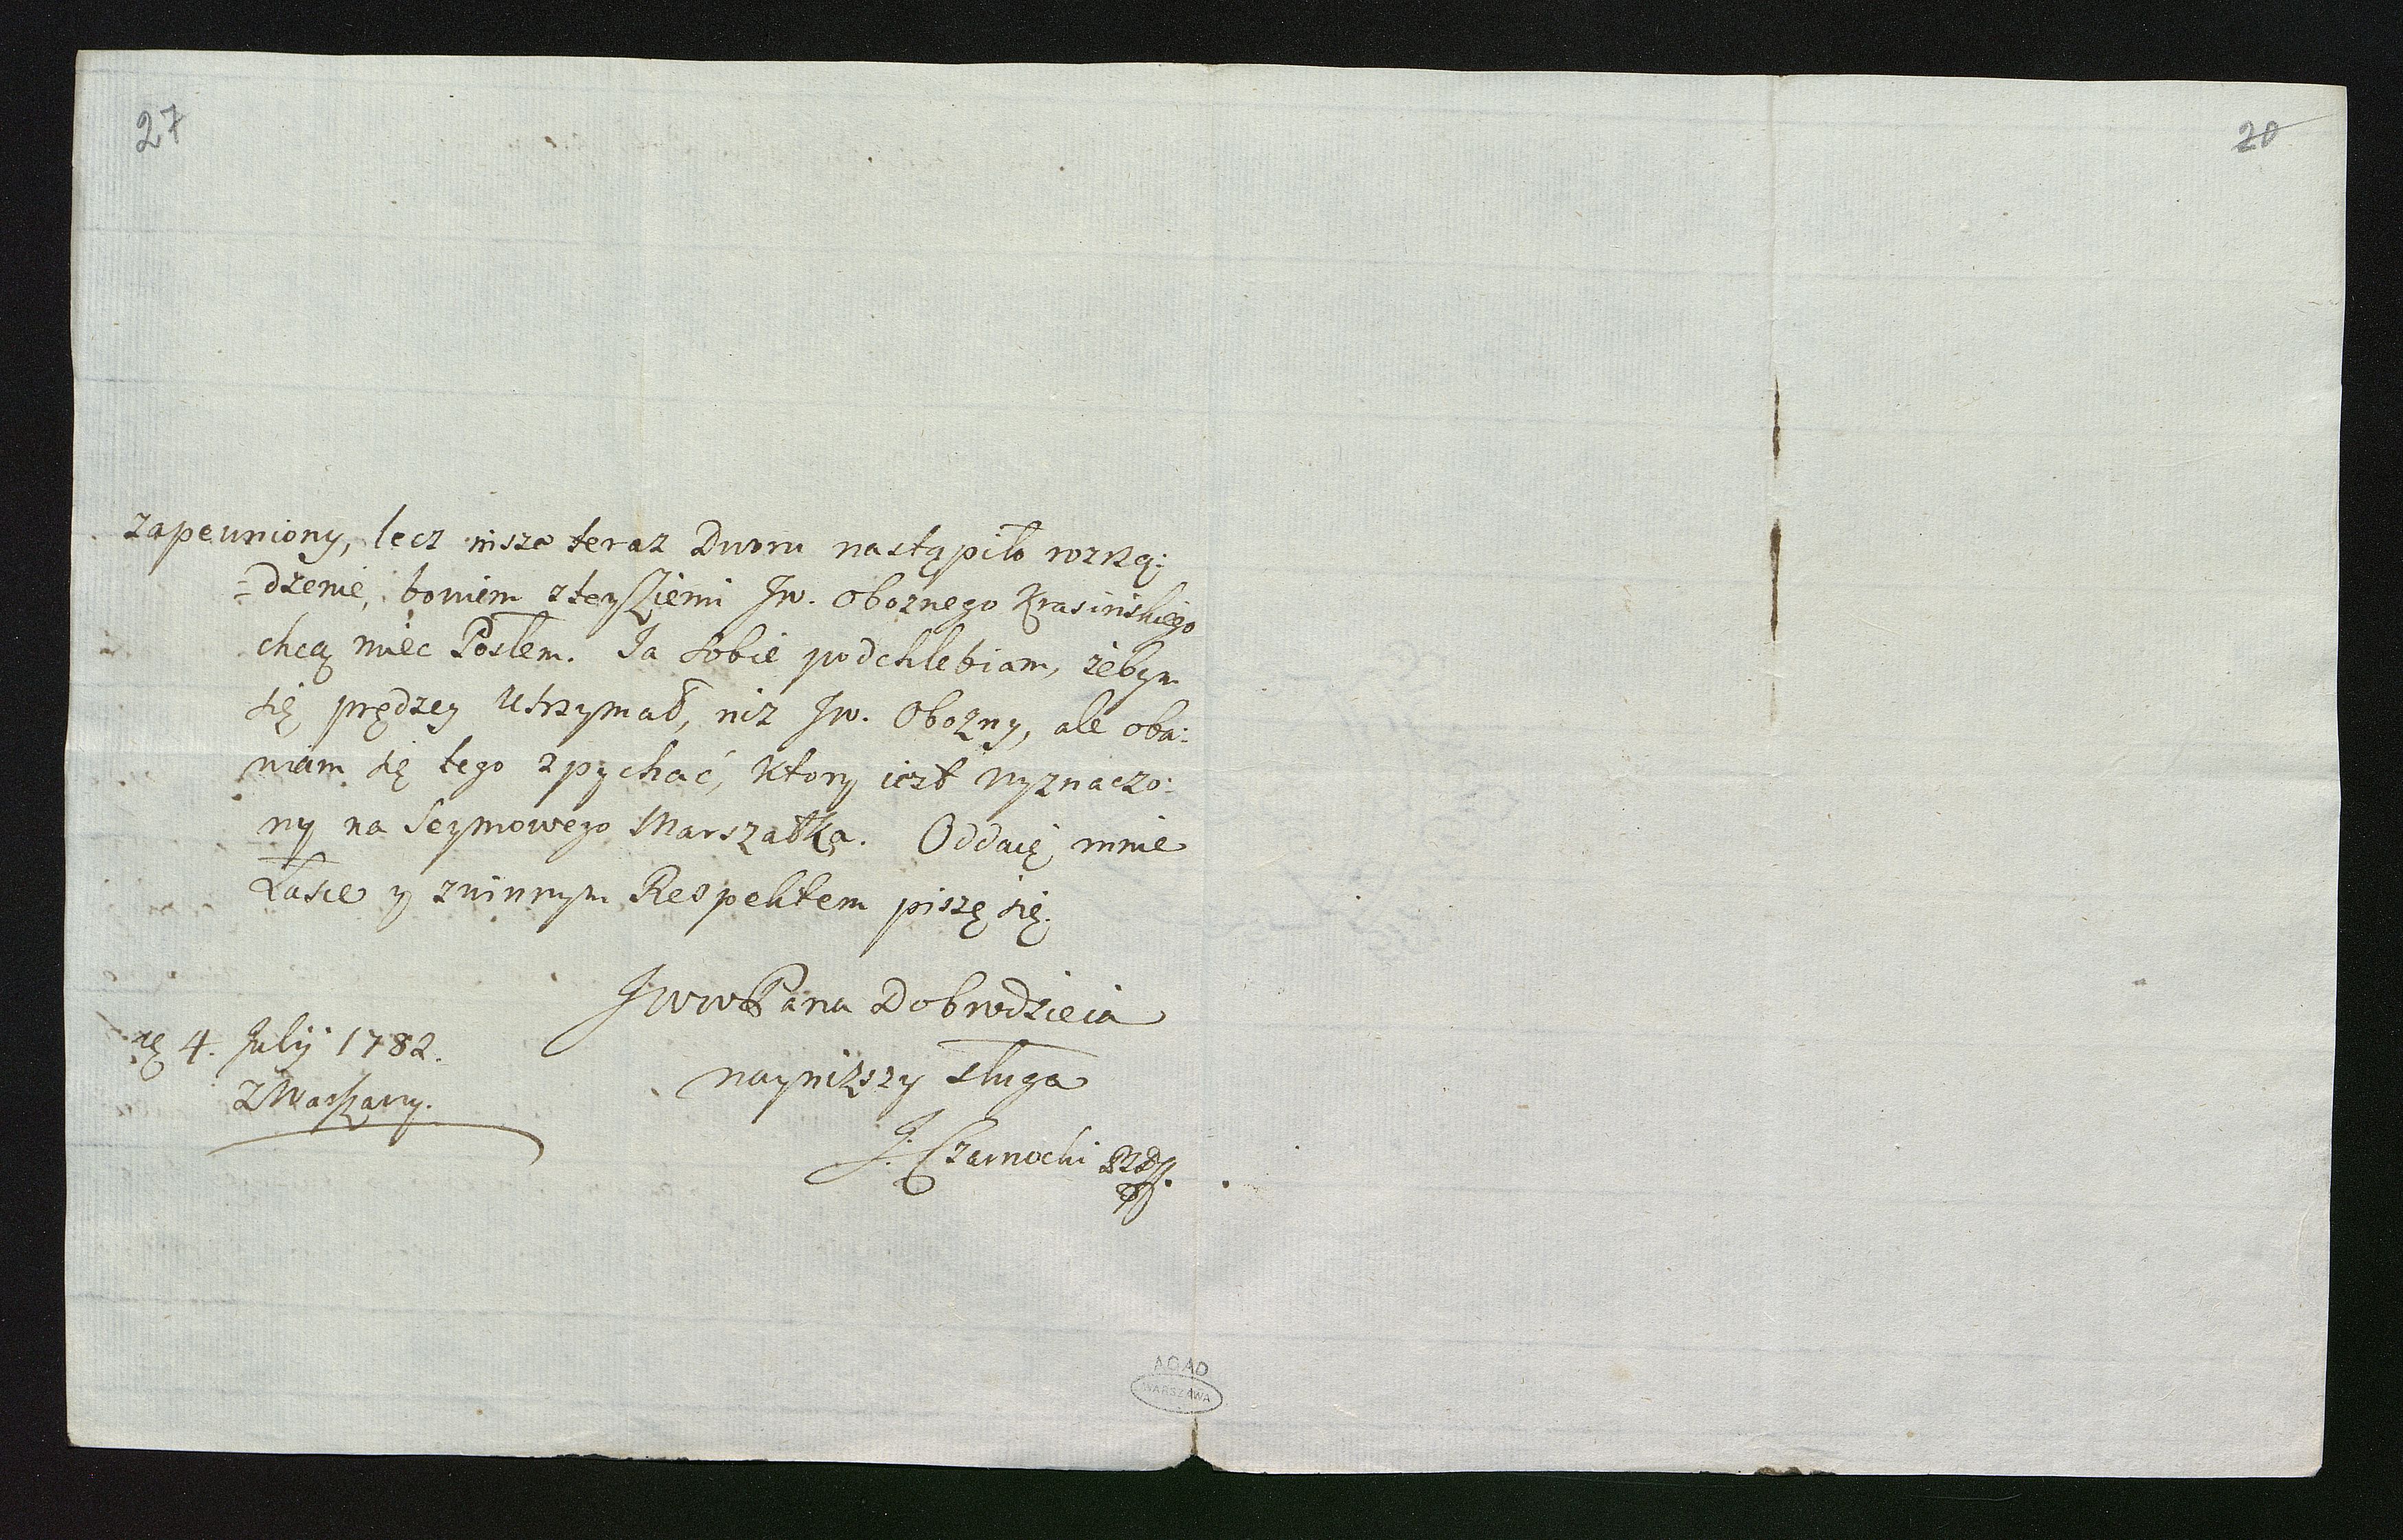 27
20
zapewniony, lecz insze teraz Dworu nastąpiło rozrzą:
=dzenie, bowiem z tey Ziemi Jw. Oboznego Krasińskiego
chcą miec Posłem. Ia sobie podchlebiam, żebym
się prędzey utrzymał, niz Jw. Obozny, ale oba:
wiam się tego zpychać, ktory iest wyznaczo:
ny na Seymowego Marszałka. Oddaię mnie
Łasce y zwinnym Respektem piszę się.
JWWPana Dobrodzieia
4. Julij 1782.
nayniższy sługa
z Warszawy.
J. Czarnocki
AGAD
WARSZAWA